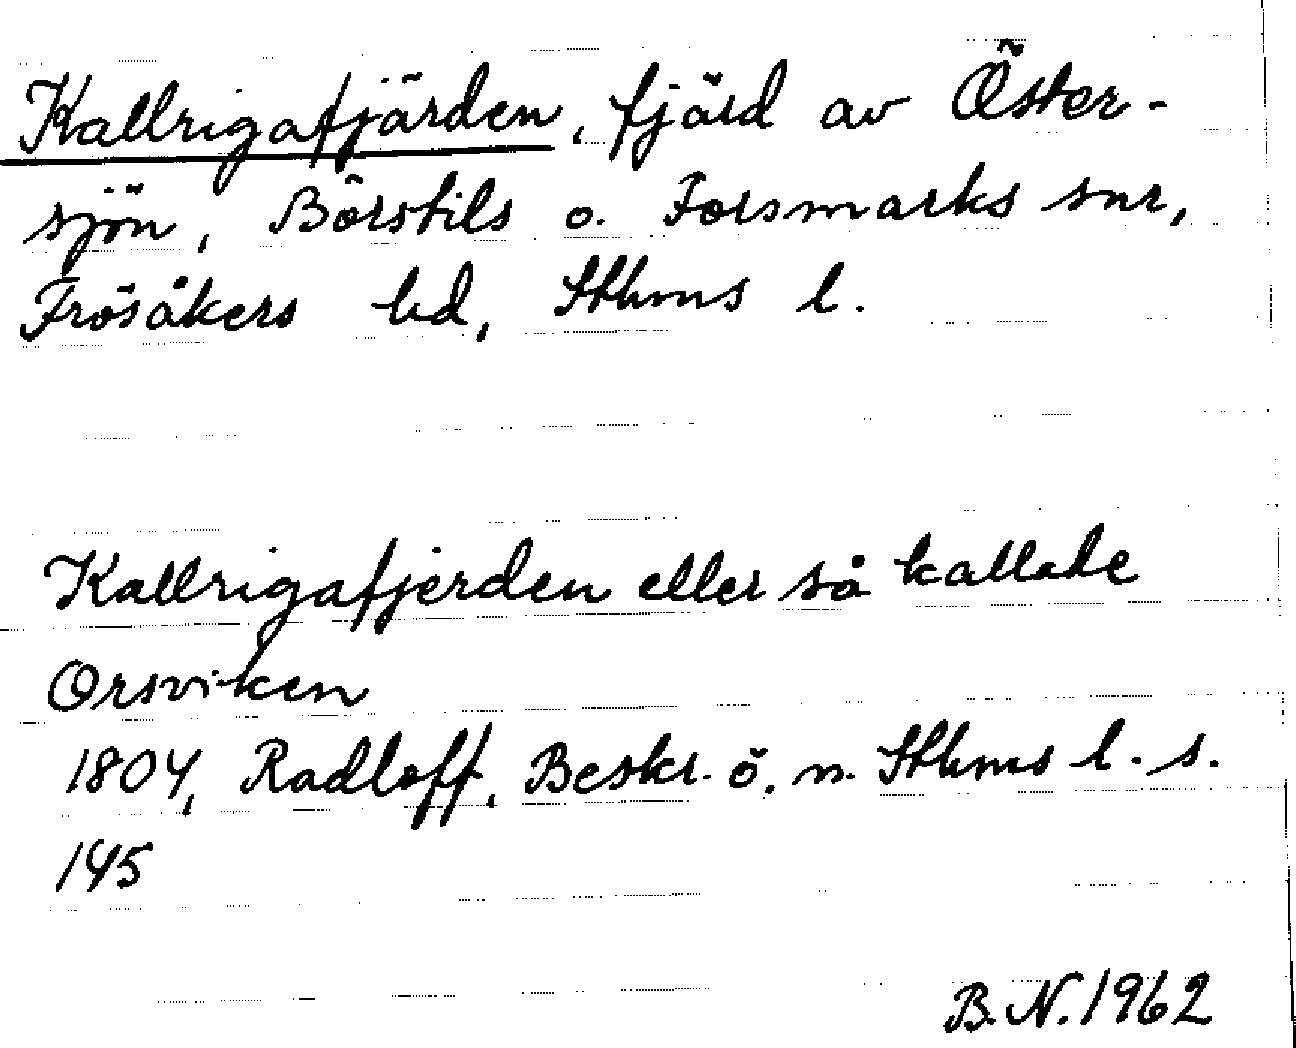 Kallrigafjärden, fjärd av Öster-
sjön, Börstils o. Forsmarks snr,
Frösåkers hd, Sthms l.
Kallrigafjerden eller så kallade
Orsviken
1804, Radloff, Beskr. ö. n. Sthms l. s.
145
B.N. 1962